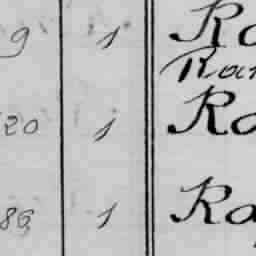 9 1 Ra
Ran
20 1 Ra
86 1 Ra